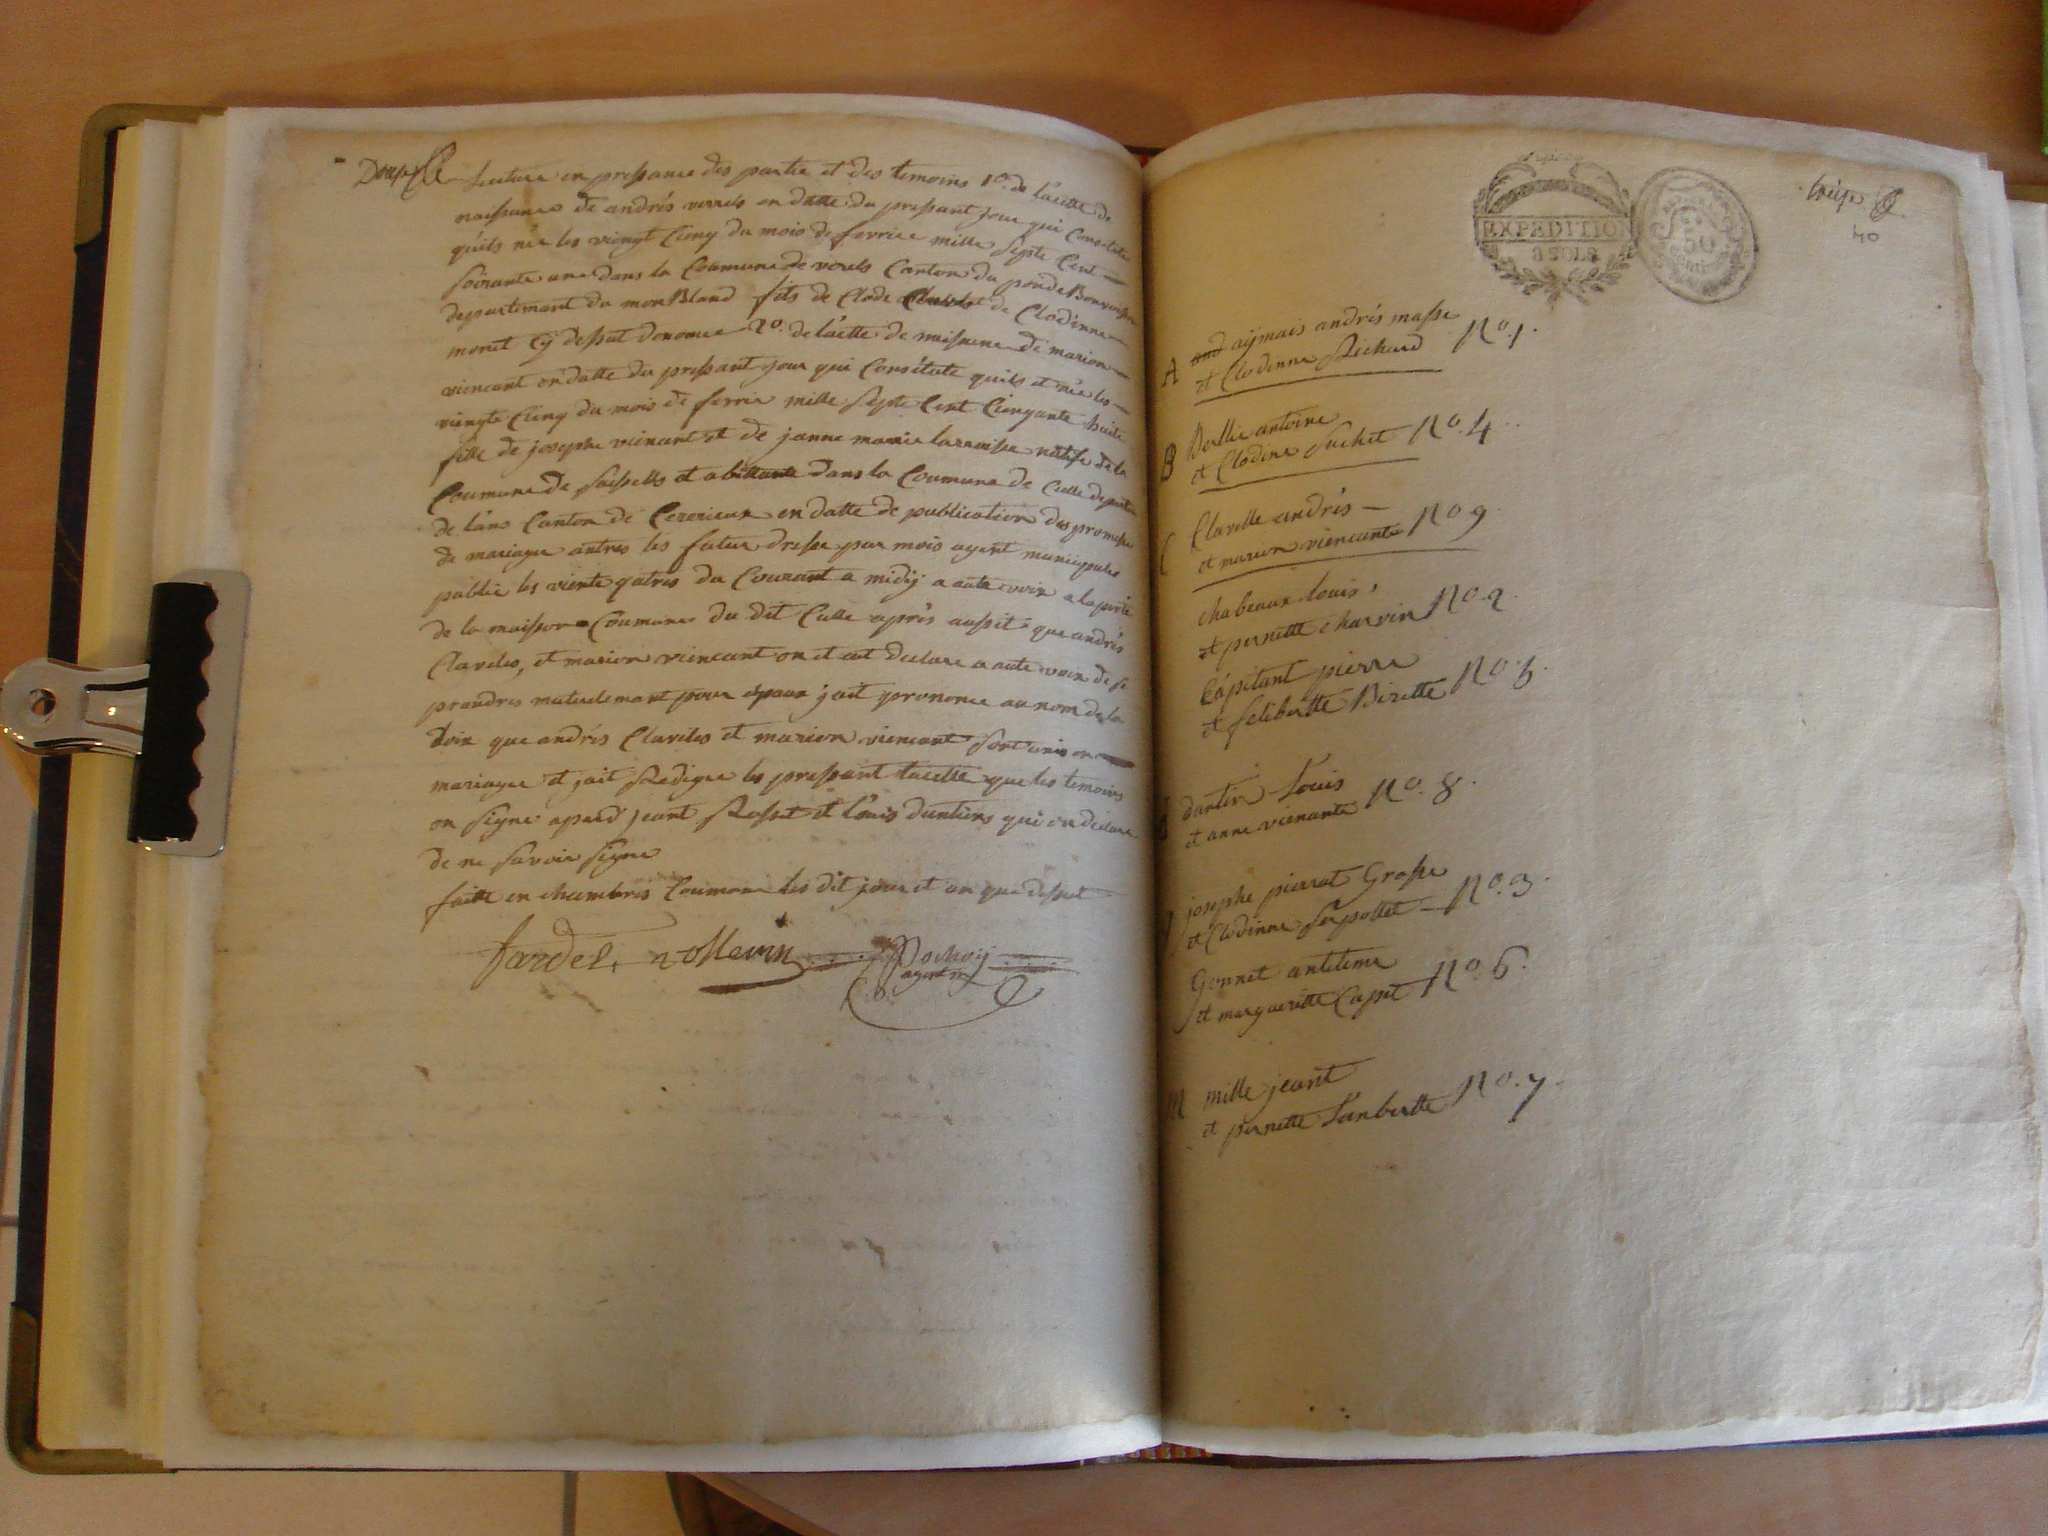 lecture en pressance des partie et des temoins 1o. de lacette de
naissance de andrés verrels en datte du pressant jour qui Constate
quils née les viengt Cienq du mois de ferrier mille septe Cent
soixante une dans la Coumune de verels Canton du pondeBonvoissin
departemant du monBland fils de Clode Clavel et de Clodinne
monet Cy dessut denomee 2o. de lacette de naissance de marion
viencent en datte du pressant jour qui Constate quils et née les
viengte Cienq du mois de ferrie mille septe Cent Cienquante huite
fille de josephe viencent et de janne marie larraisse natife de la
Coumune de saissells et abittante dans la Coumune de Culle departe
de lain Canton de Cezerieux en datte de publication des promesse
de mariague antres les futur dresse par mois agent municipales
publie les viente qatres du Courant a midij a aute voix a la porte
de la maisson Coumune du dit Culle après aussit que andrés
Claveles, et marion viencent on et aut declare a aute voix de se
prandres mutuelemant pour epoux jait prononce au nom de la
loix que andrés Claveles et marion viencent sont unis en
mariague et jait Redigee les pressant lacette que les temoins
on signe apard jeant Rosset et louis duntiens qui on declare
de ne savoir signe
faitte en chambres Coumune les dit jour et an que dessut
fardel.
agent m
EXPEDITION
3 SOLS
50
40
A and aijmais andrés masse
et Clodinne Richard No. 1.
B Berllie antoine
et Clodine suchet No. 4.
C Clavelle andrés
et marion viencente No 9.
chabeaux louis
et pernette charvin No. 2.
Capitant pierre
et feliberte Birette No. 5.
dantin Louis
et anne vienante No. 8.
josephe pierrat Grosse
et Clodinne serpollet No. 3.
Gonnet antelme
et marguerite Capit No. 6.
M mille jeant
et pernette lanbertte No. 7.